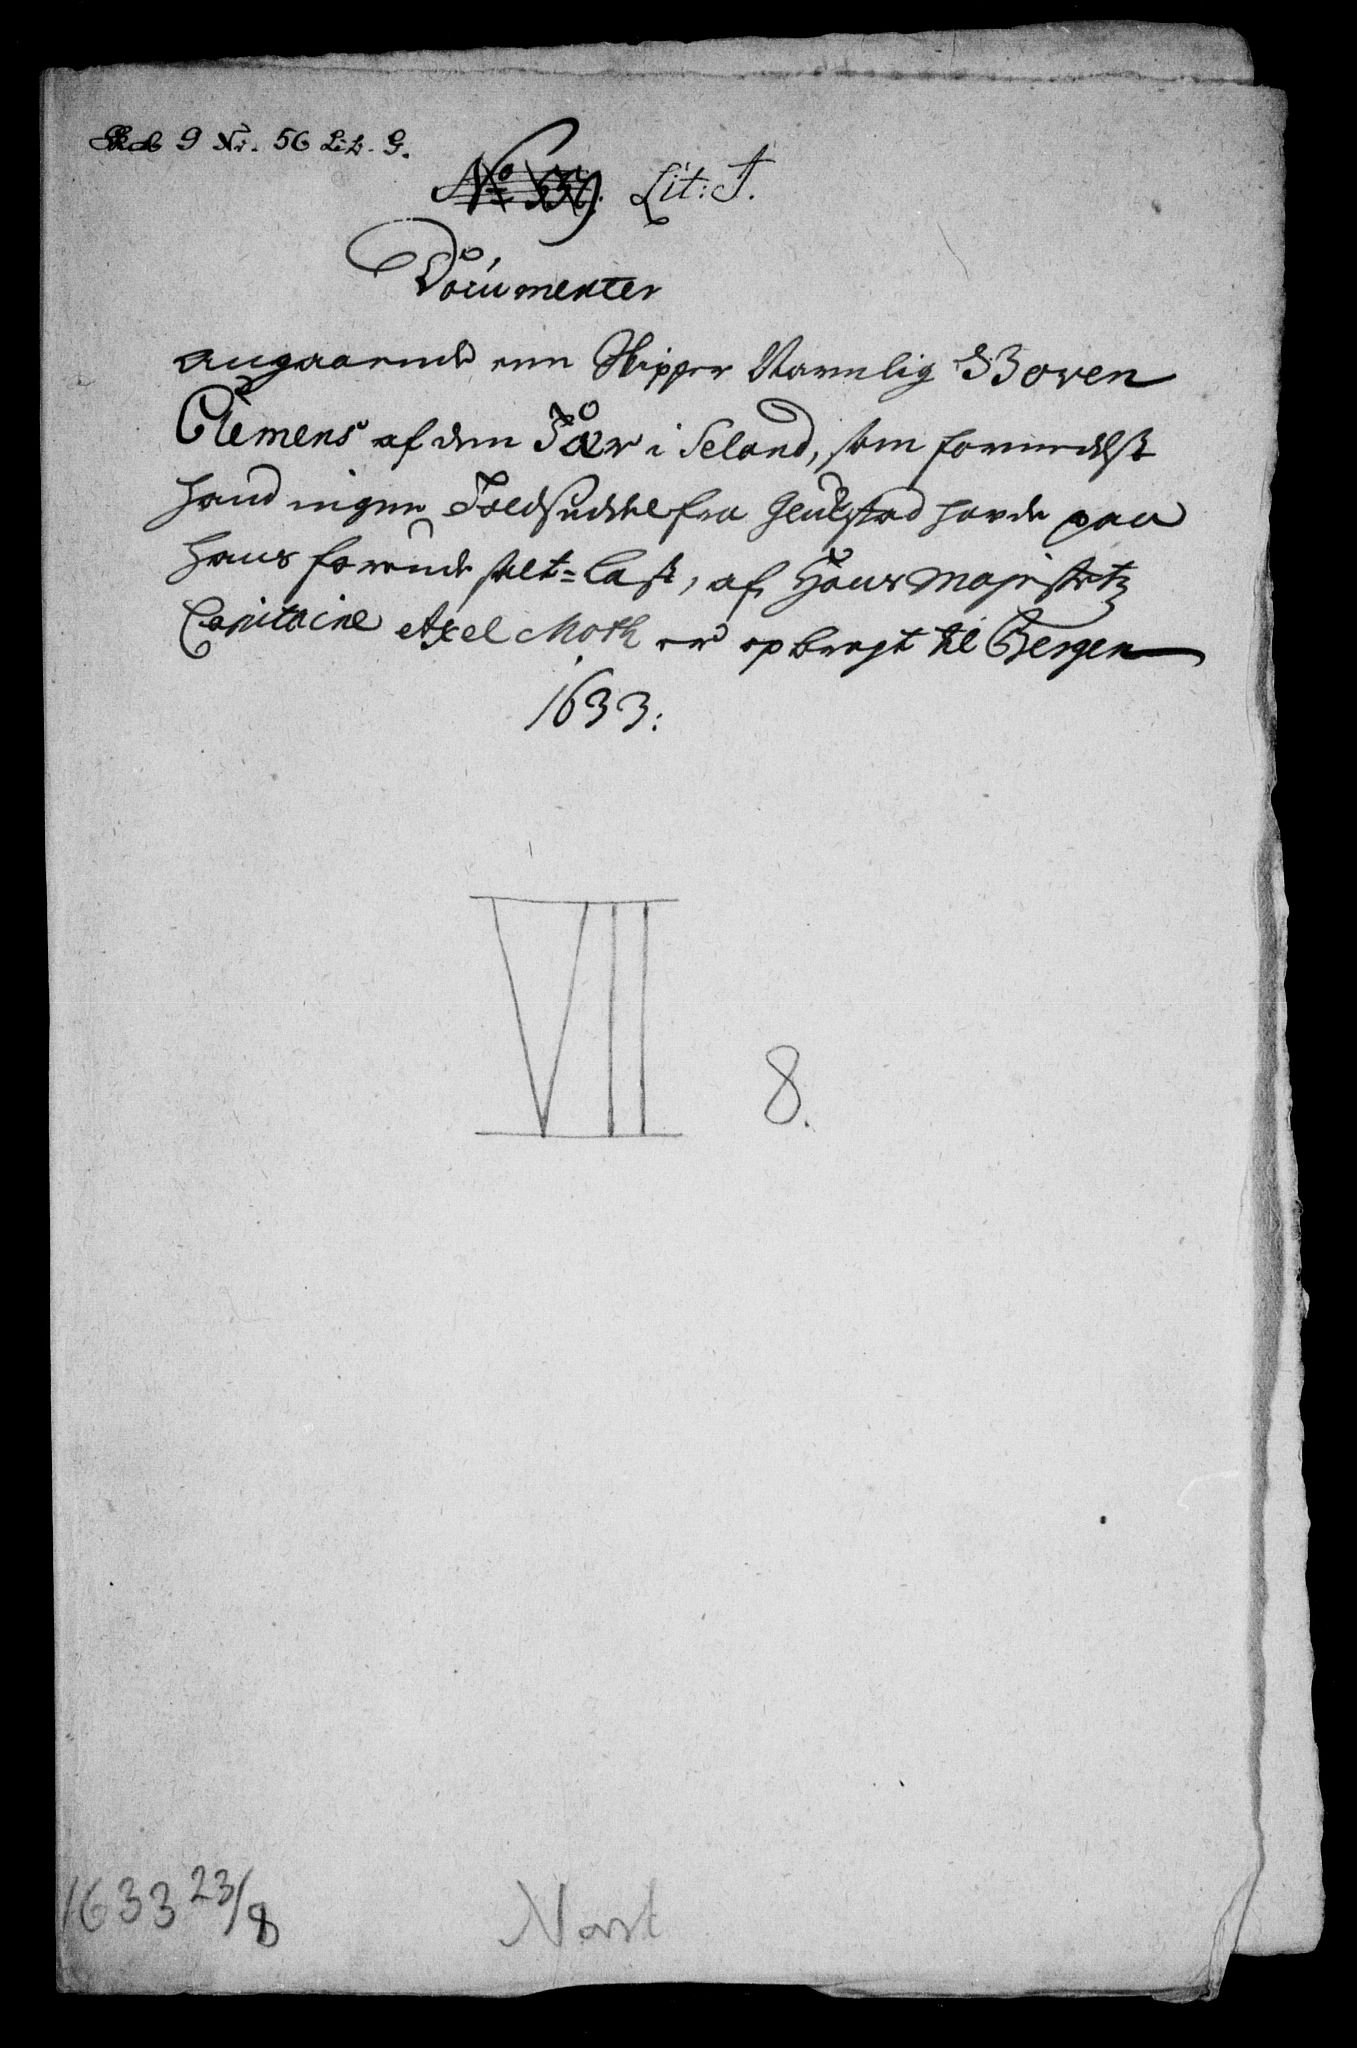 Skab 9 Nr. 56 Lit. G.
No 539. Lit: J.
Documenter
angaaende een Skipper Navnlig Boven
Clemens af den Fær i Seland, som formedelst
hand ingen Toldseddel fra Glückstad hafde paa
hans førende salt=Last, af Hans Majestetz
Capitaine Axel Moth er opbragt til Bergen
1633:
VII 8.
1633 23/8
Norst